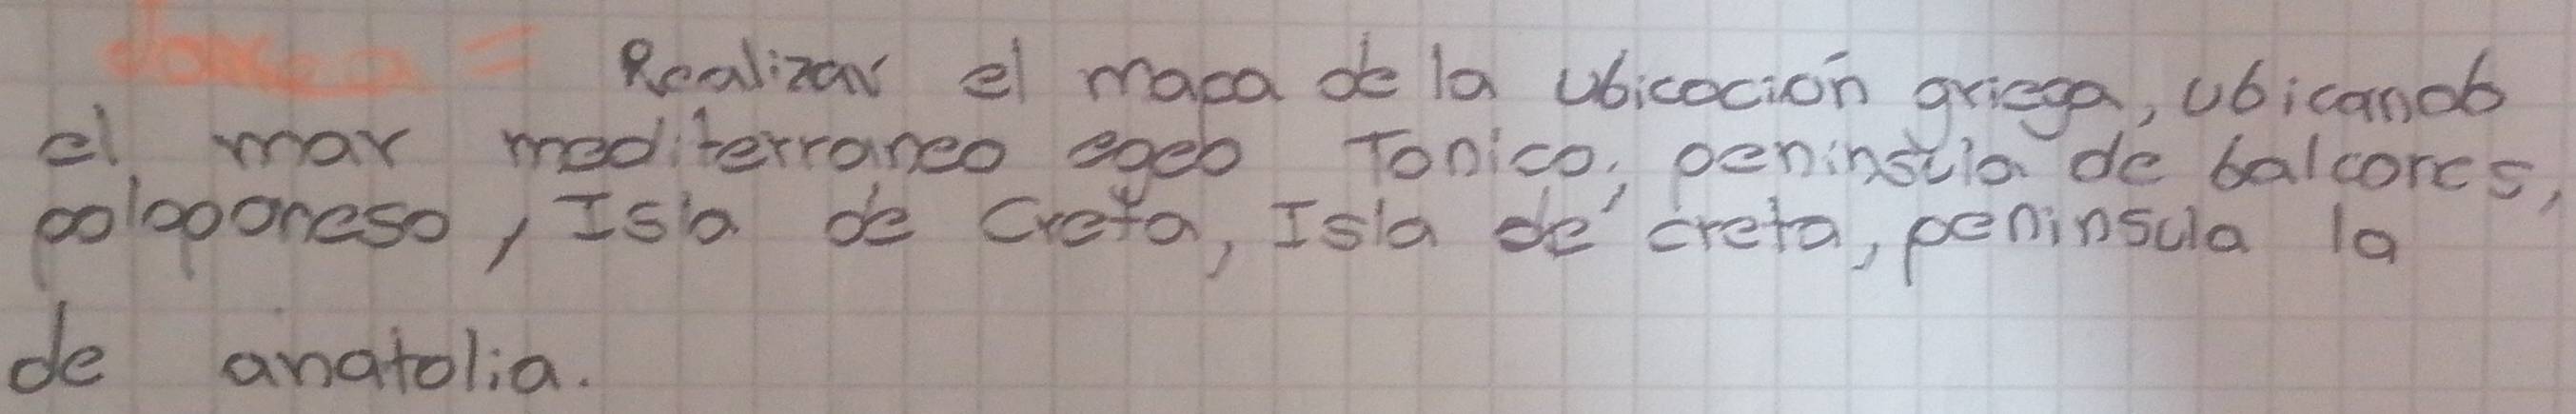 tarea = Realizar el mapa de la ubicación griega, ubicando
el mar mediterraneo egeo Jonico, peninsula de balcones,
peloponeso, Isla de Creta, Isla de creta, peninsula la
de anatolia.